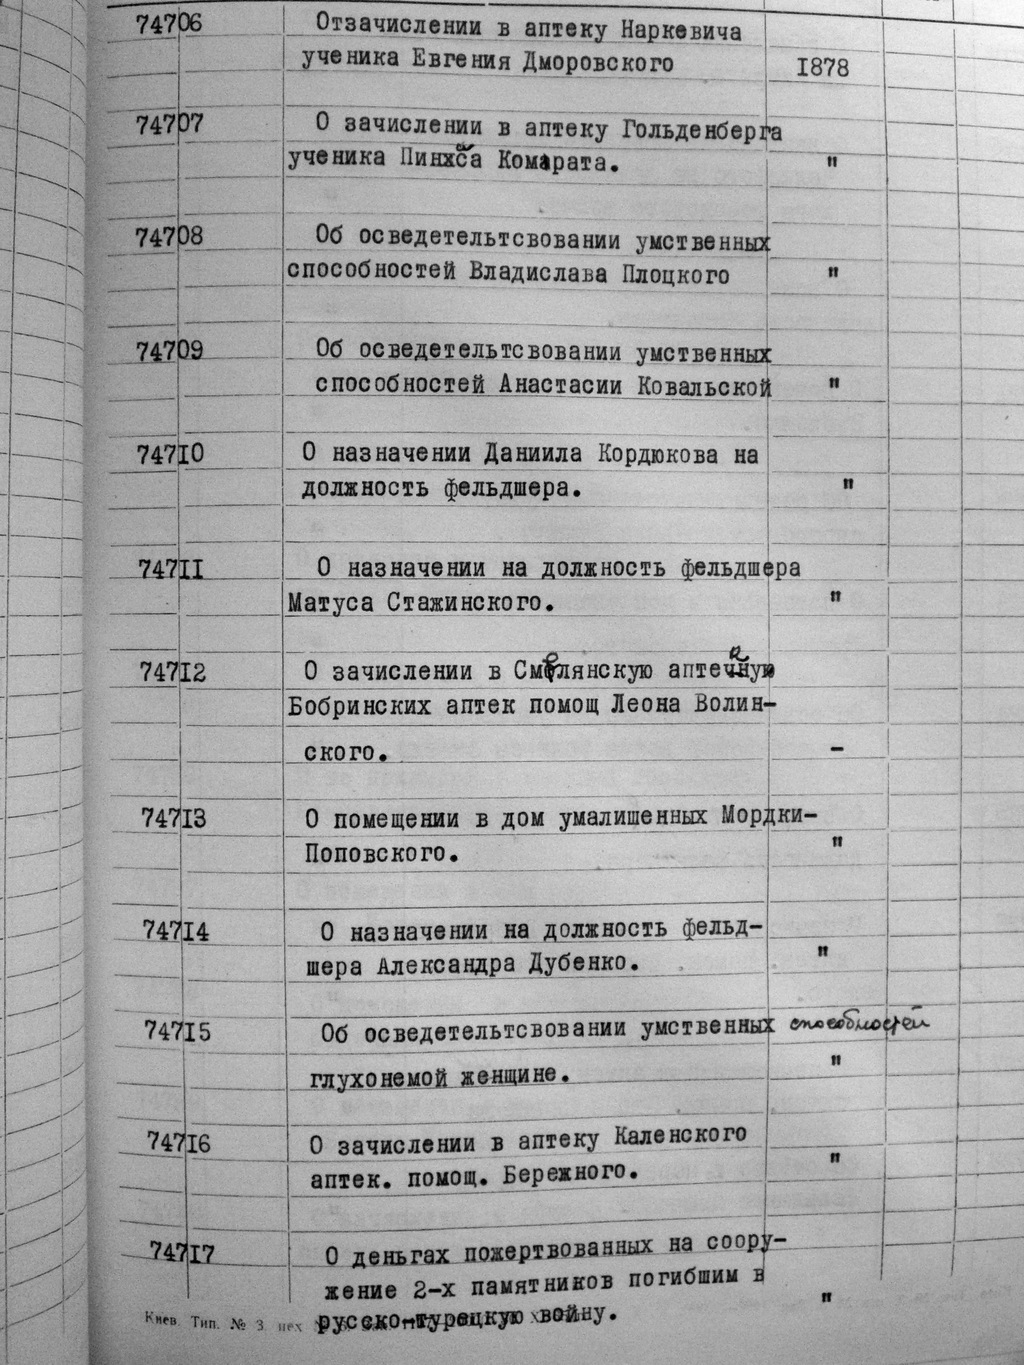 74706 Отзачислении в аптеку Наркевича
ученика Евгения Дморовского 1878
74707 О зачислении в аптеку Гольденберга
ученика Пинхаса Комарата. "
74708 Об осведетельтсвовании умственных
способностей Владислава Плоцкого "
74709 Об осведетельтсвовании умственных
способностей Анастасии Ковальской "
74710 О назначении Даниила Кордюкова на
должность фельдшера. "
74711 О назначении на должность фельдшера
Матуса Стажинского. "
74712 О зачислении в Смелянскую аптеку
Бобринских аптек помощ Леона Волин-
ского. -
74713 О помещении в дом умалишенных Мордки-
Поповского. "
74714 О назначении на должность фельд-
шера Александра Дубенко. "
74715 Об осведетельтсвовании умственных способностей
глухонемой женщине. "
74716 О зачислении в аптеку Каленского
аптек. помощ. Бережного. "
74717 О деньгах пожертвованных на соору-
жение 2-х памятников погибшим в
русско-турецкую войну. "
Киев. Тип. № 3. цех